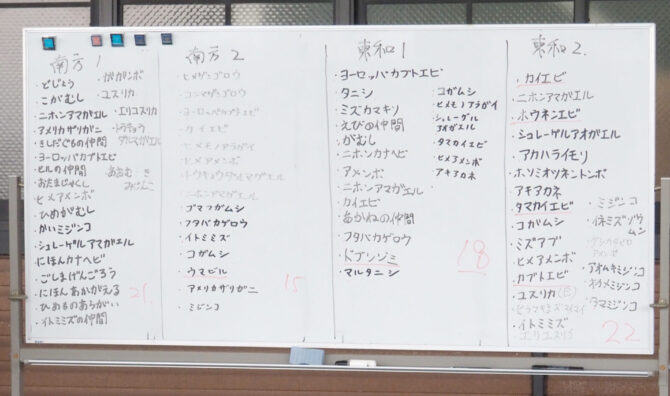 南方1
・どじょう
・こがむし
・ニホンアマガエル
・アメリカザリガニ
・きしだぐもの仲間
・ヨーロッパカブトエビ
・ヒルの仲間
・おたまじゃくし
・ヒメアメンボ
・ひめがむし
・かいミジンコ
・シュレーゲルアマガエル
・にほんカナヘビ
・ごしまげんごろう
・にほんあかがえる
・ひめものあらがい
・イトミミズの仲間
・ガガンボ
・ユスリカ
・エリユスリカ
・トウキョウ
ダルマガエル
みじんこ
21
南方2
・ヒメゲンゴロウ
・コシマゲンゴロウ
・ヨーロッパカブトエビ
・カイエビ
・ヒメモノアラガイ
・ヒメアメンボ
・トウキョウダルマガエル
・ニホンアマガエル
・ゴマフガムシ
・フタバカゲロウ
・イトミミズ
・コガムシ
・ウマビル
・アメリカザリガニ
・ミジンコ
15
東和1
・ヨーロッパカブトエビ
・タニシ
・ミズカマキリ
・えびの仲間
・がむし
・ニホンカナヘビ
・アメンボ
・ニホンアマガエル
・カイエビ
・あかねの仲間
・フタバカゲロウ
・ドブシジミ
・マルタニシ
・コガムシ
・ヒメモノアラガイ
・シュレーゲル
アオガエル
・タマカイエビ
・ヒメアメンボ
・アキアカネ
18
東和2.
・カイエビ
・ニホンアマガエル
・ホウネンエビ
・シュレーゲルアオガエル
・アカハライモリ
・ホソミオツネントンボ
・アキアカネ
・タマカイエビ
・コガムシ
・ミズアブ
・ヒメアメンボ
・カブトエビ
・ユスリカ
・ヒラマキミズマイマイ
・イトミミズ
・エリユスリカ
・ミジンコ
・イネミズゾウ
ムシ
アメンボ
・アオムキミジンコ
・オカメミジンコ
・タマミジンコ
22